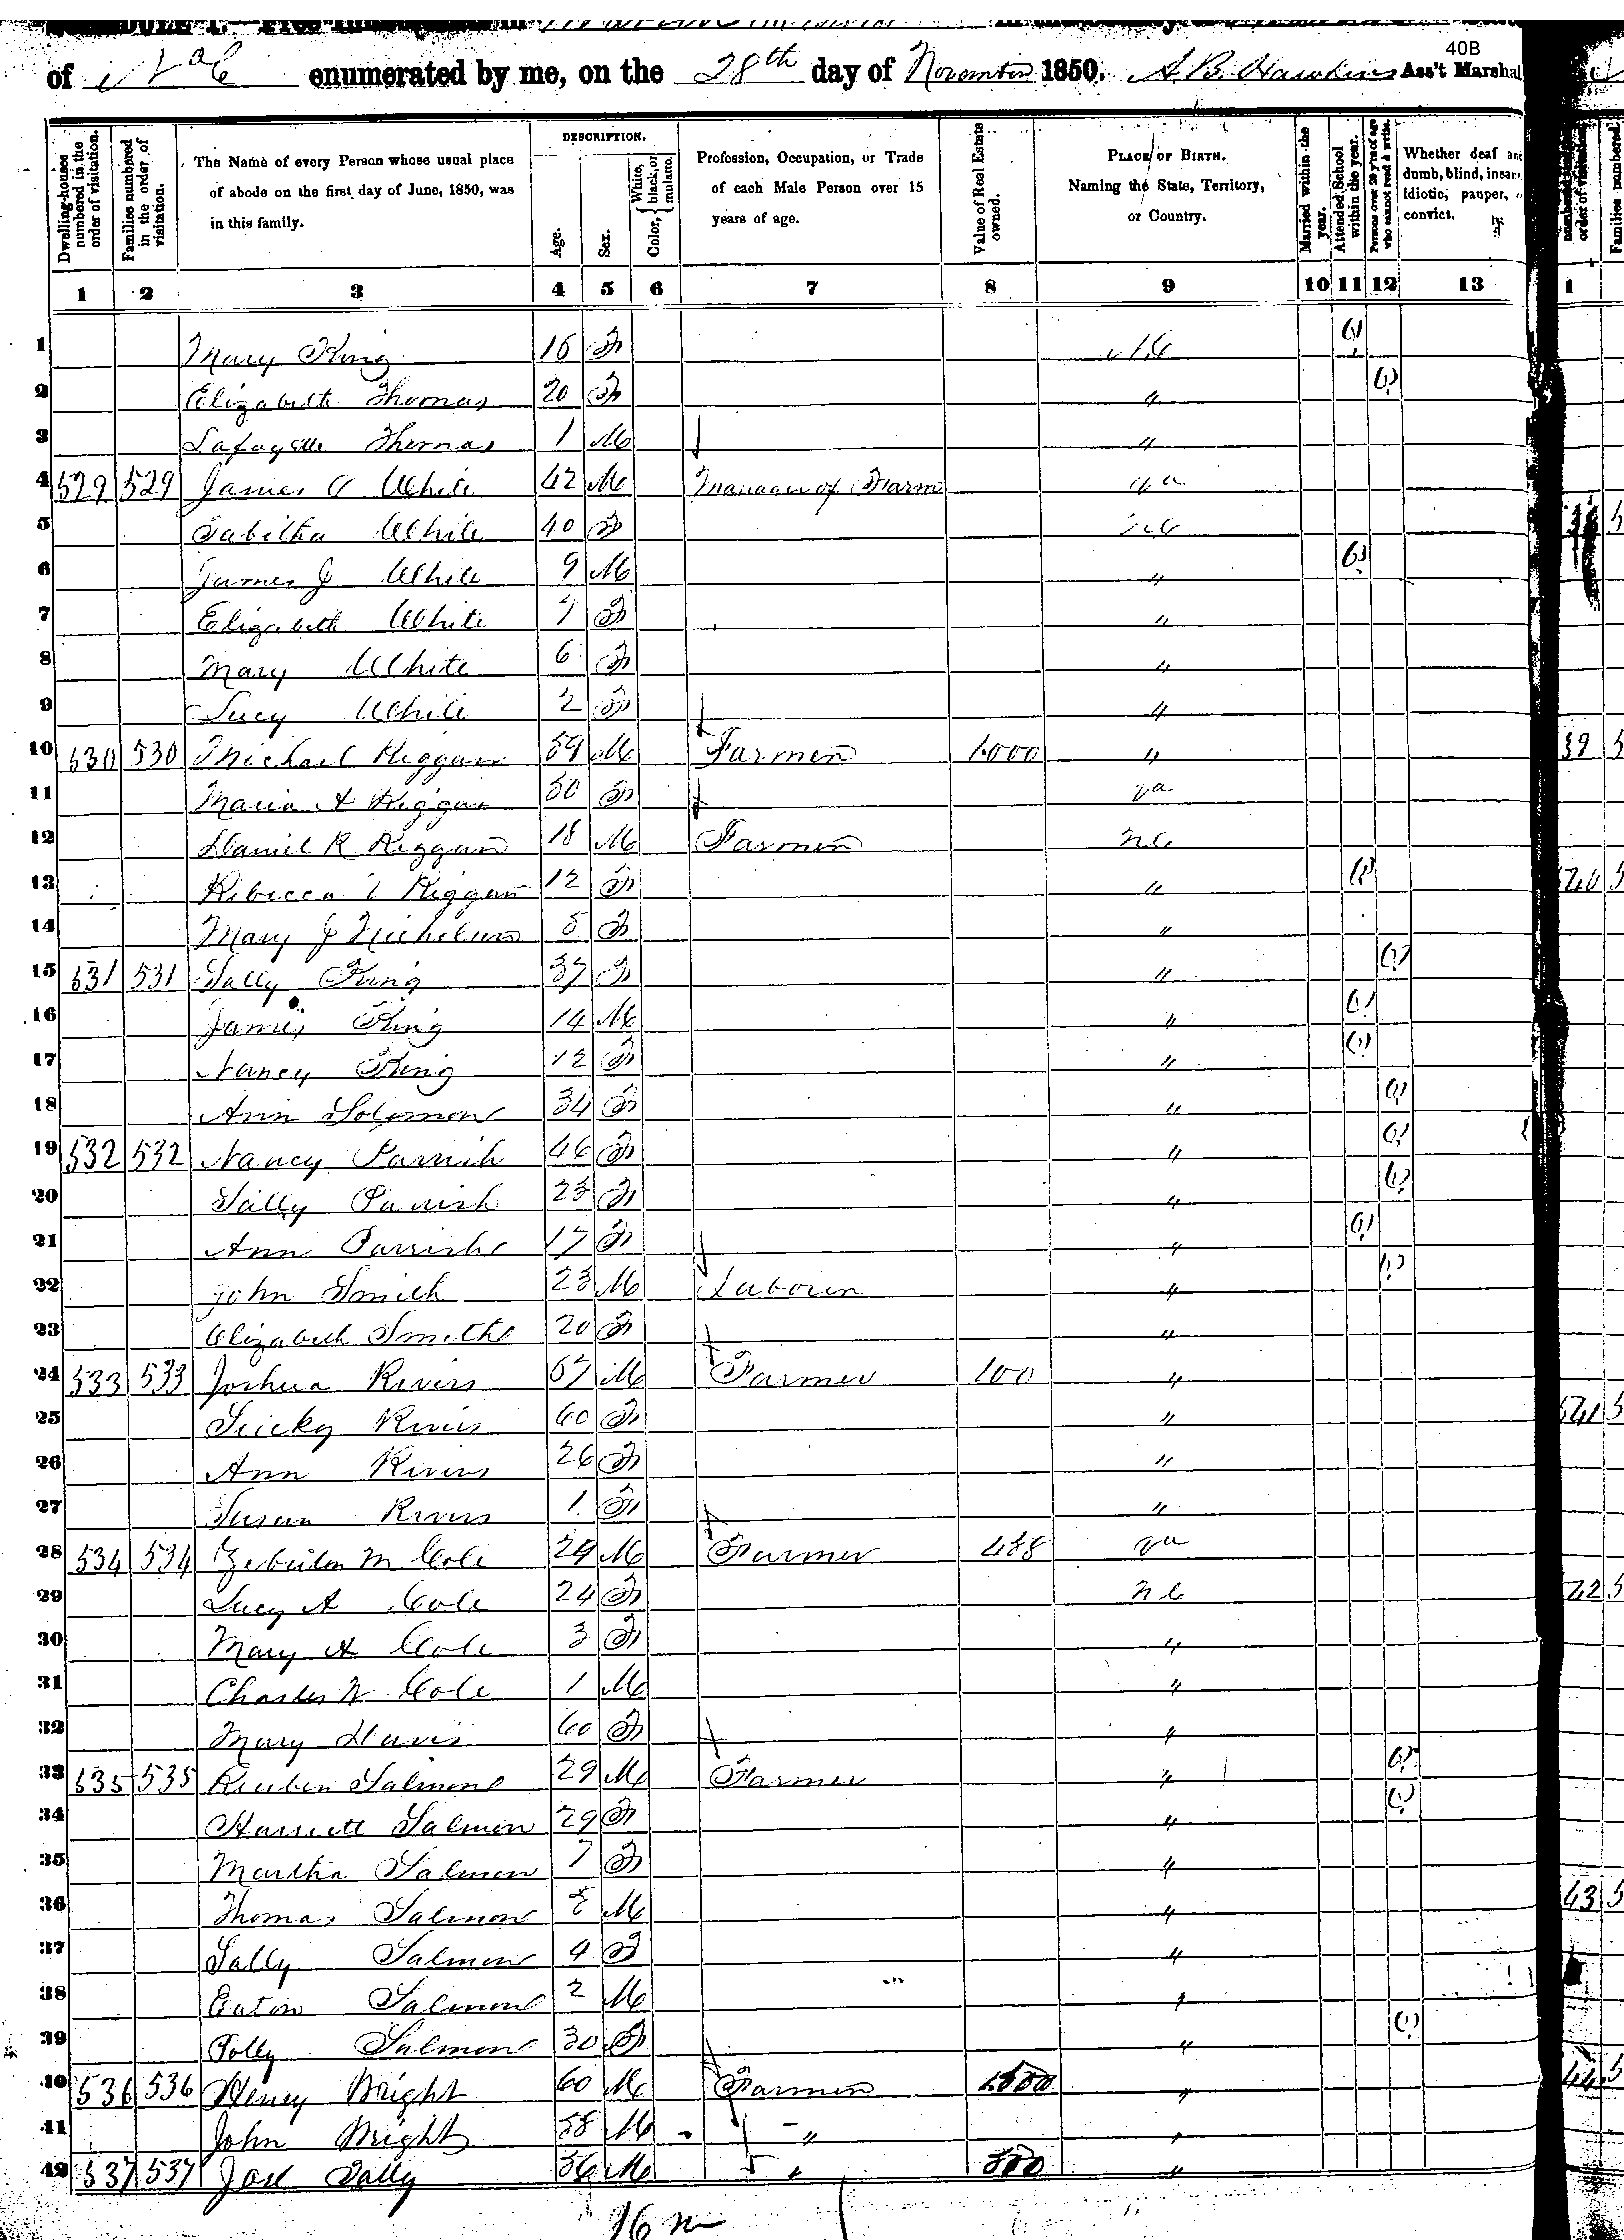 40B
of N Ca enumerated by me, on the 28th day of November 1850. A. B. Hawkins Ass't Marshal
Dwelling-houses numbered in the order of visitation.
Families numbered in the order of visitation.
The Name of every Person whose usual place of abode on the first day of June, 1850, was in this family.
DESCRIPTION.
Age.
Sex.
Color, { White, black, or mulatto.
Profession, Occupation, or Trade of each Male Person over 15 years of age.
Value of Real Estate owned.
PLACE OF BIRTH. Naming the State, Territory, or Country.
Married within the year.
Attended School within the year.
Persons over 20 y'rs of age who cannot read & write.
Whether deaf and dumb, blind, insane, idiotic, pauper, or convict.
1 2 3 4 5 6 7 8 9 10 11 12 13
1 Mary King 16 F N.C 1
2 Elizabeth Thomas 20 F " 1
3 Lafayette Thomas 1 M "
4 529 529 James A White 42 M Manager of Farm Va
5 Tabitha White 40 F N C
6 James J White 9 M " 1
7 Elizabeth White 7 F "
8 Mary White 6 F "
9 Lucy White 2 F "
10 530 530 Michael Riggan 59 M Farmer 1000 "
11 Maria A Riggan 50 F Va
12 Daniel R Riggan 18 M Farmer N C
13 Rebecca Riggan 12 F " 1
14 Mary J Nicholson 5 F "
15 531 531 Sally King 37 F " 1
16 James King 14 M " 1
17 Nancy King 12 F " 1
18 Ann Solomon 34 F " 1
19 532 532 Nancy Parrish 46 F " 1
20 Sally Parrish 23 F " 1
21 Ann Parrish 17 F " 1
22 John Smith 23 M Laborer " 1
23 Elizabeth Smith 20 F "
24 533 533 Joshua Rivers 67 M Farmer 100 "
25 Sucky Rivers 60 F "
26 Ann Rivers 26 F "
27 Susan Rivers 1 F "
28 534 534 Zebulon M Cole 29 M Farmer 488 Va
29 Lucy A Cole 24 F N C
30 Mary A Cole 3 F "
31 Charles N Cole 1 M "
32 Mary Davis 60 F "
33 535 535 Reuben Salmon 29 M Farmer " 1
34 Harriett Salmon 29 F " 1
35 Martha Salmon 7 F "
36 Thomas Salmon M "
37 Sally Salmon 4 F "
38 Eaton Salmon 2 M "
39 Polly Salmon 30 F " 1
40 536 536 Henry Bright 60 M Farmer "
41 John Bright 58 M " "
42 537 537 Jose Sally 36 M " 500 "
16 m